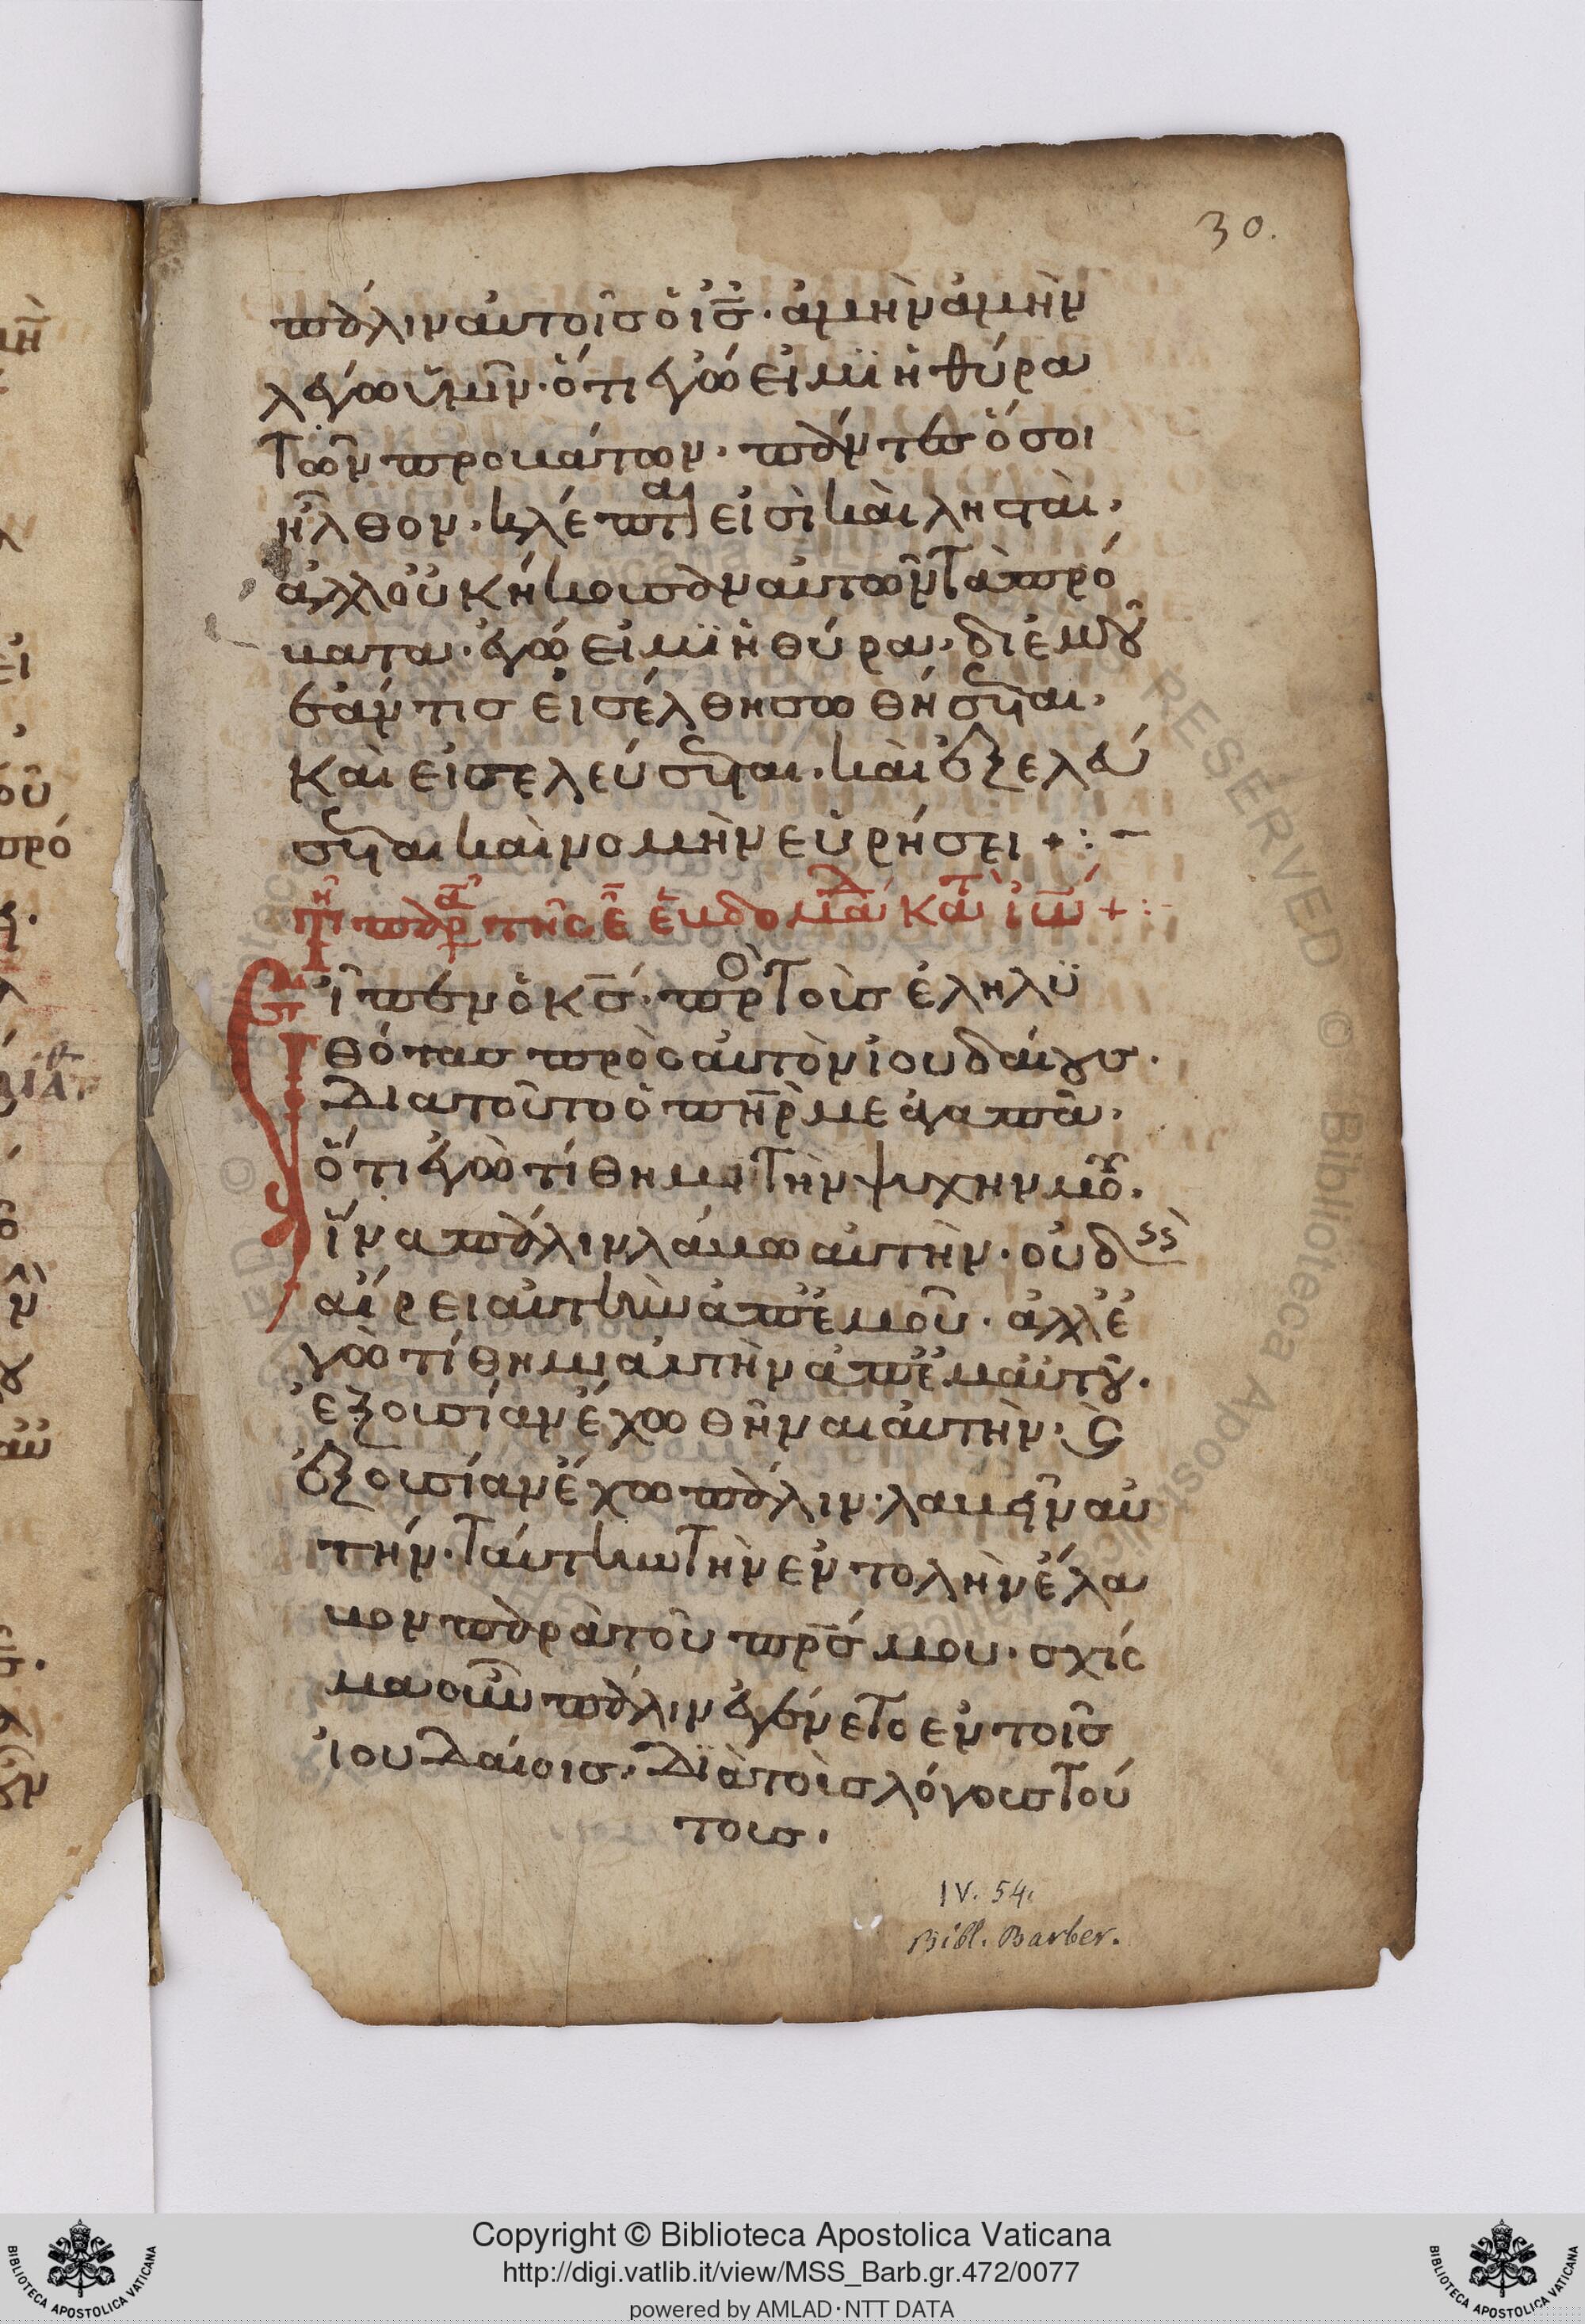 30.
πάλιν αὐτοῖσ ὁ ἰ̅σ̅· ἀμὴν ἀμὴν
λέγω ὑμῖν· ὅτι ἐγώ εἰμϊ ἡ θύρα
τῶν προβάτων· πάντεσ ὅσοι
ἦλθον· κλέπται εἰσὶ καὶ λησταὶ·
ἀλλοὐκ ήκουσαν αὐτῶν τὰ πρό
βατα· ἐγώ εἰμϊ ἡ θύρα· διἐμοῦ
ἐάν τισ εἰσέλθη σωθήσεται·
καὶ εἰσελεύσεται· καὶ ἐξελεύ
σεται καὶ νομὴν εὑρήσει +:-
τῆ παρα τῆς ε̅ ἑβδομάδ κατ ἰω +:-
Εἶπεν ὁ κ̅σ̅· πρὸ τοὺσ ἐληλϋ
θότασ πρὸς αὐτὸν ἰουδαίουσ·
διατοῦτο ὁ π̅η̅ρ̅ με ἀγαπᾶ·
ὅτι ἐγὼ τίθημι τὴν ψυχην μοῦ·
ἵνα πάλιν λάβω αὐτὴν· οὐδεὶσ
αἴρει αὐτὴν ἀπἐμοῦ· ἀλλἐ
γὼ τίθημι αὐτὴν ἀπἐμαυτοῦ·
ἐξουσίαν ἔχω θῆναι αὐτὴν· ϗ
ἐξουσίαν ἔχω πάλιν· λαβεῖν αὐ
τήν· ταύτην τὴν εντολὴν ἔλα
βον παρὰ τοῦ π̅ρ̅σ̅ μου· σχίς
μα οὖν πάλιν ἐγένετο ἐν τοῖσ
ἰουδαίοισ· διὰ τοὺσ λόγουσ τού
τουσ·
IV. 54.
Bibl. Barber.
Copyright © Biblioteca Apostolica Vaticana
http://digi.vatlib.it/view/MSS_Barb.gr.472/0077
powered by AMLAD·NTT DATA